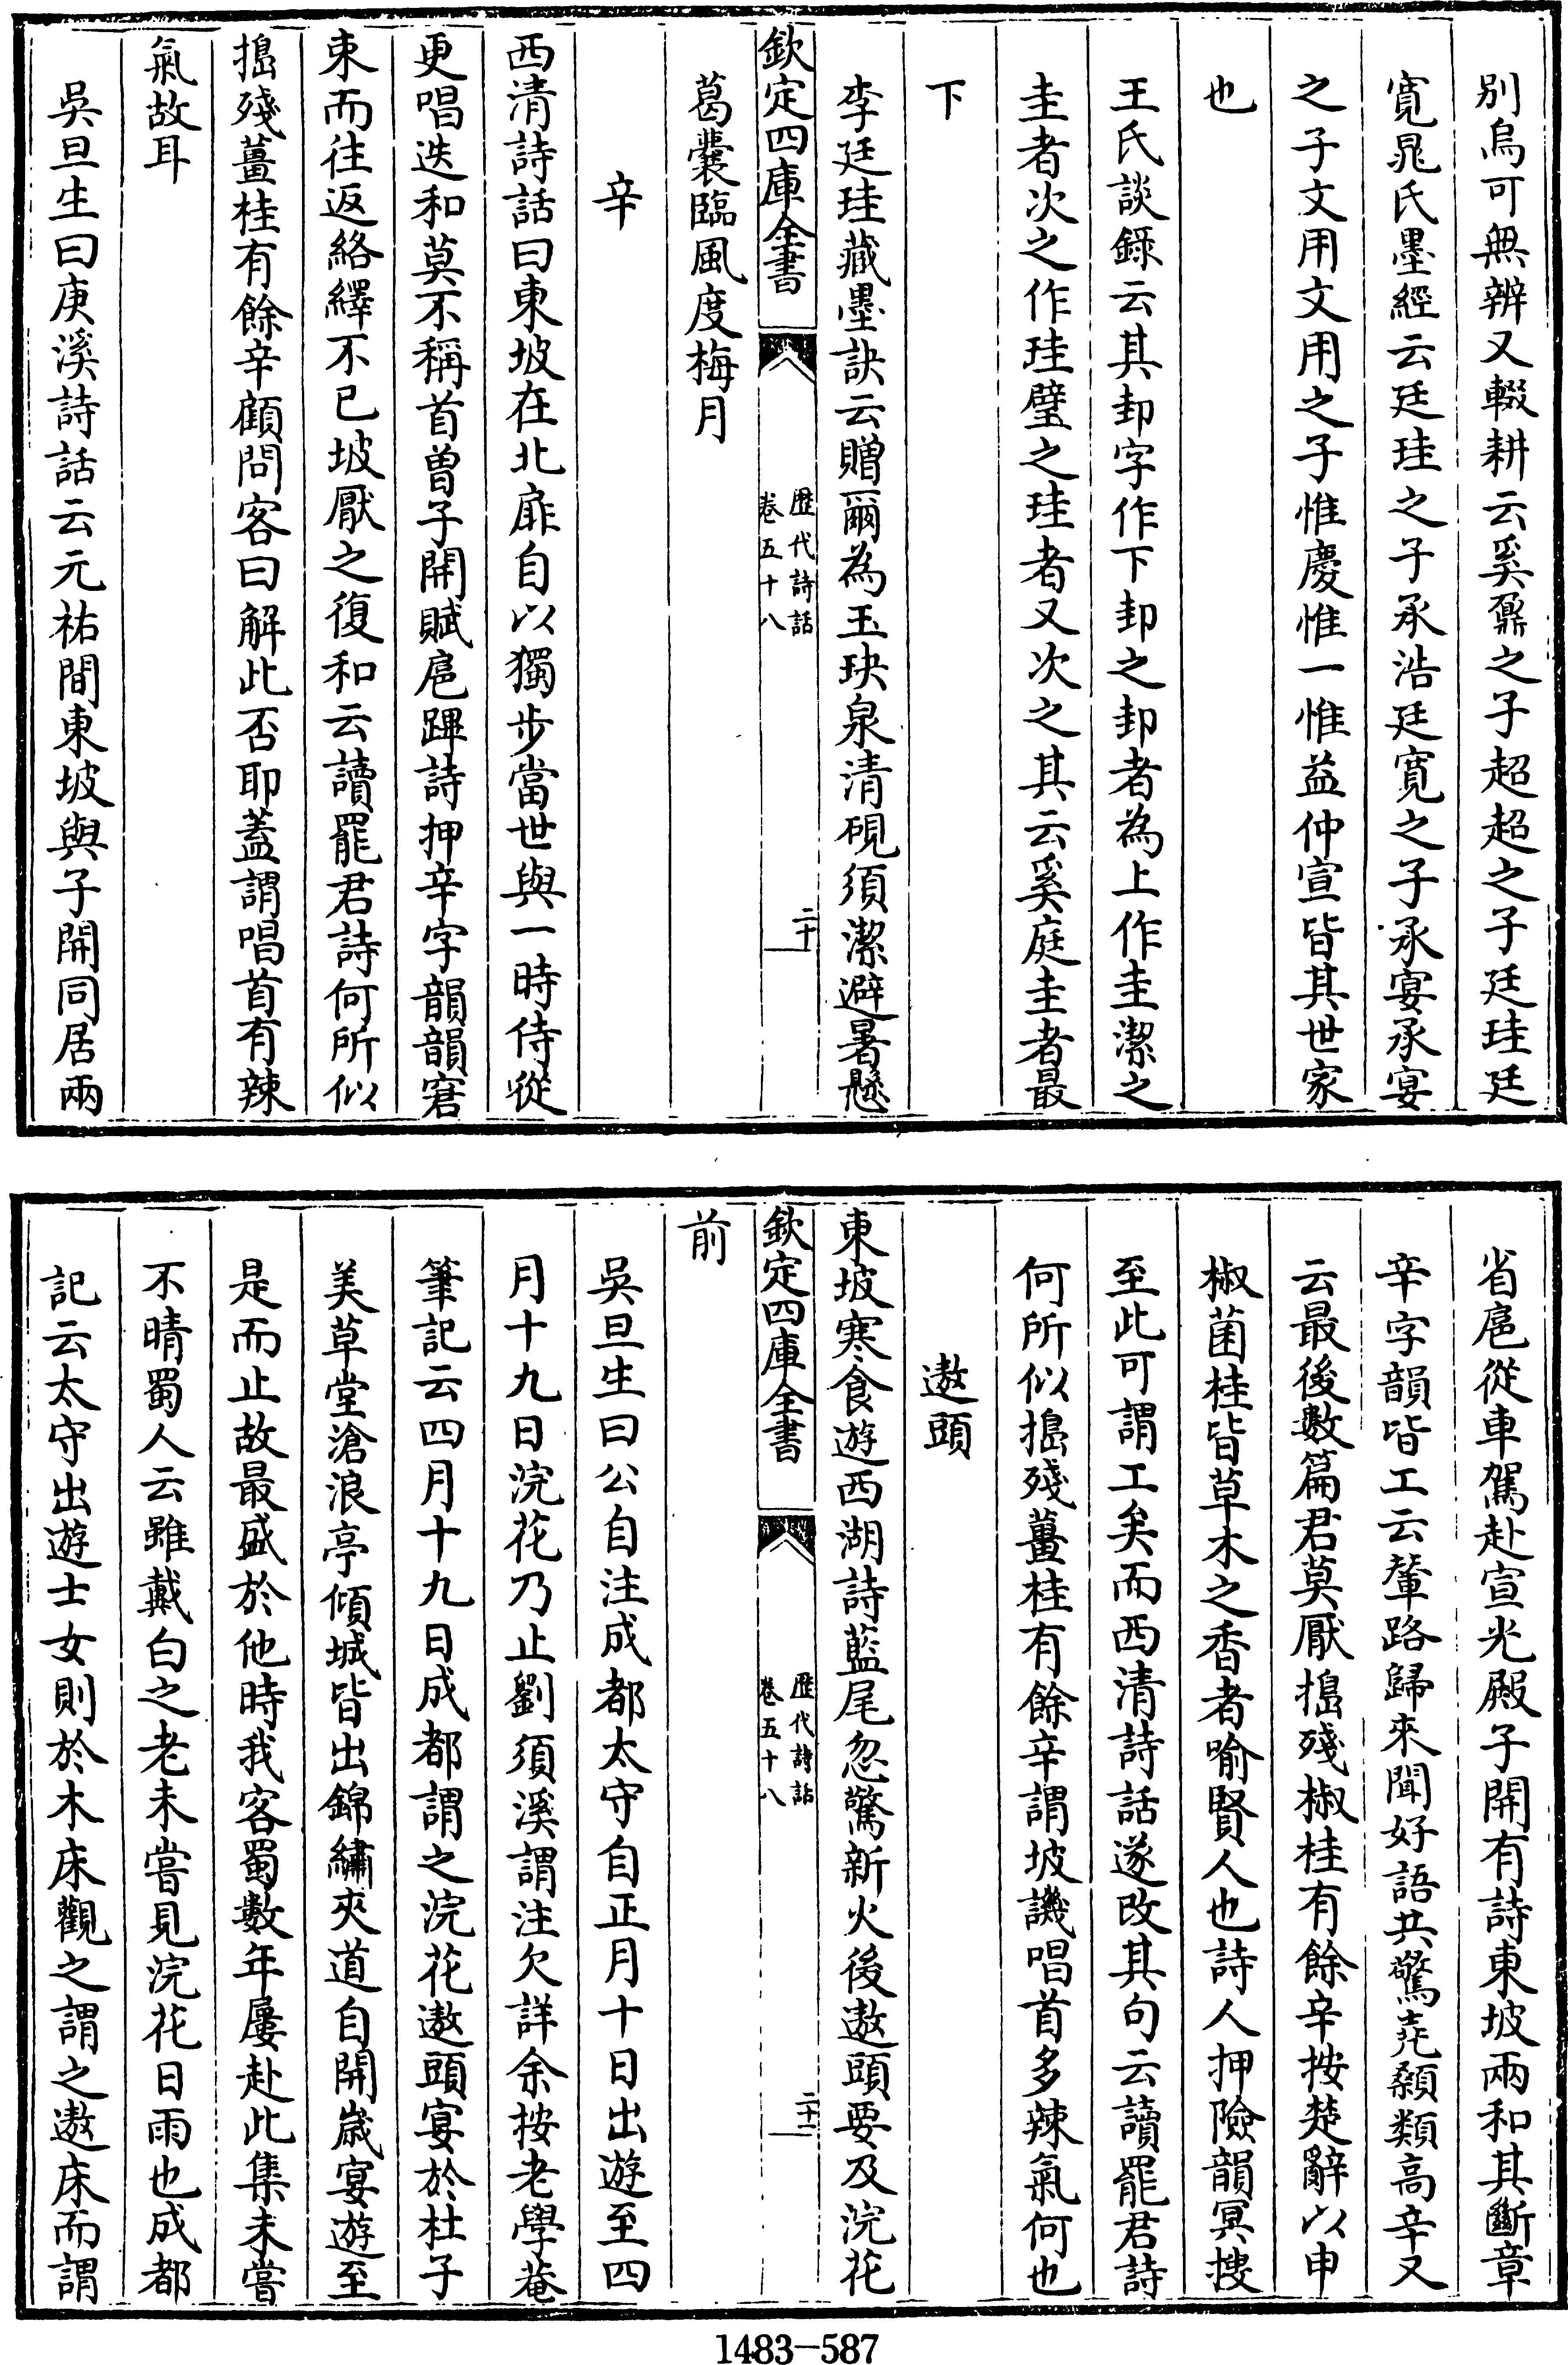 別烏可無辨又輟耕云奚鼐之子超超之子廷珪廷
寛晁氏墨經云廷珪之子承浩廷寛之子承宴承宴
之子文用文用之子惟慶惟一惟益仲宣皆其世家
也
王氏談錄云其邽字作下邽之邽者為上作圭潔之
圭者次之作珪璧之珪者又次之其云奚庭圭者最
下
李廷珪藏墨訣云贈爾為玉玦泉清硯須潔避暑懸
欽定四庫全書
歴代詩話
卷五十八
二十
葛囊臨風度梅月
辛
西清詩話曰東坡在北扉自以獨步當世與一時侍從
更唱迭和莫不稱首曽子開賦扈蹕詩押辛字韻韻窘
東而往返絡繹不已坡厭之復和云讀罷君詩何所似
搗殘薑桂有餘辛顧問客曰解此否耶蓋謂唱首有辣
氣故耳
吳旦生曰庚溪詩話云元祐間東坡與子開同居兩
省扈從車駕赴宣光殿子開有詩東坡兩和其斷章
辛字韻皆工云輦路歸來聞好語共驚堯顙類高辛又
云最後數篇君莫厭搗殘椒桂有餘辛按楚辭以申
椒菌桂皆草木之香者喻賢人也詩人押險韻冥搜
至此可謂工矣而西清詩話遂改其句云讀罷君詩
何所似搗殘薑桂有餘辛謂坡譏唱首多辣氣何也
遨頭
東坡寒食遊西湖詩藍尾忽驚新火後遨頭要及浣花
欽定四庫全書
歴代詩話
卷五十八
二十一
前
吳旦生曰公自注成都太守自正月十日出遊至四
月十九日浣花乃止劉須溪謂注欠詳余按老學菴
筆記云四月十九日成都謂之浣花遨頭宴於杜子
美草堂滄浪亭傾城皆出錦繡夾道自開歲宴遊至
是而止故最盛於他時我客蜀數年屢赴此集未嘗
不晴蜀人云雖戴白之老未嘗見浣花日雨也成都
記云太守出遊士女則於木床觀之謂之遨床而謂
1483-587